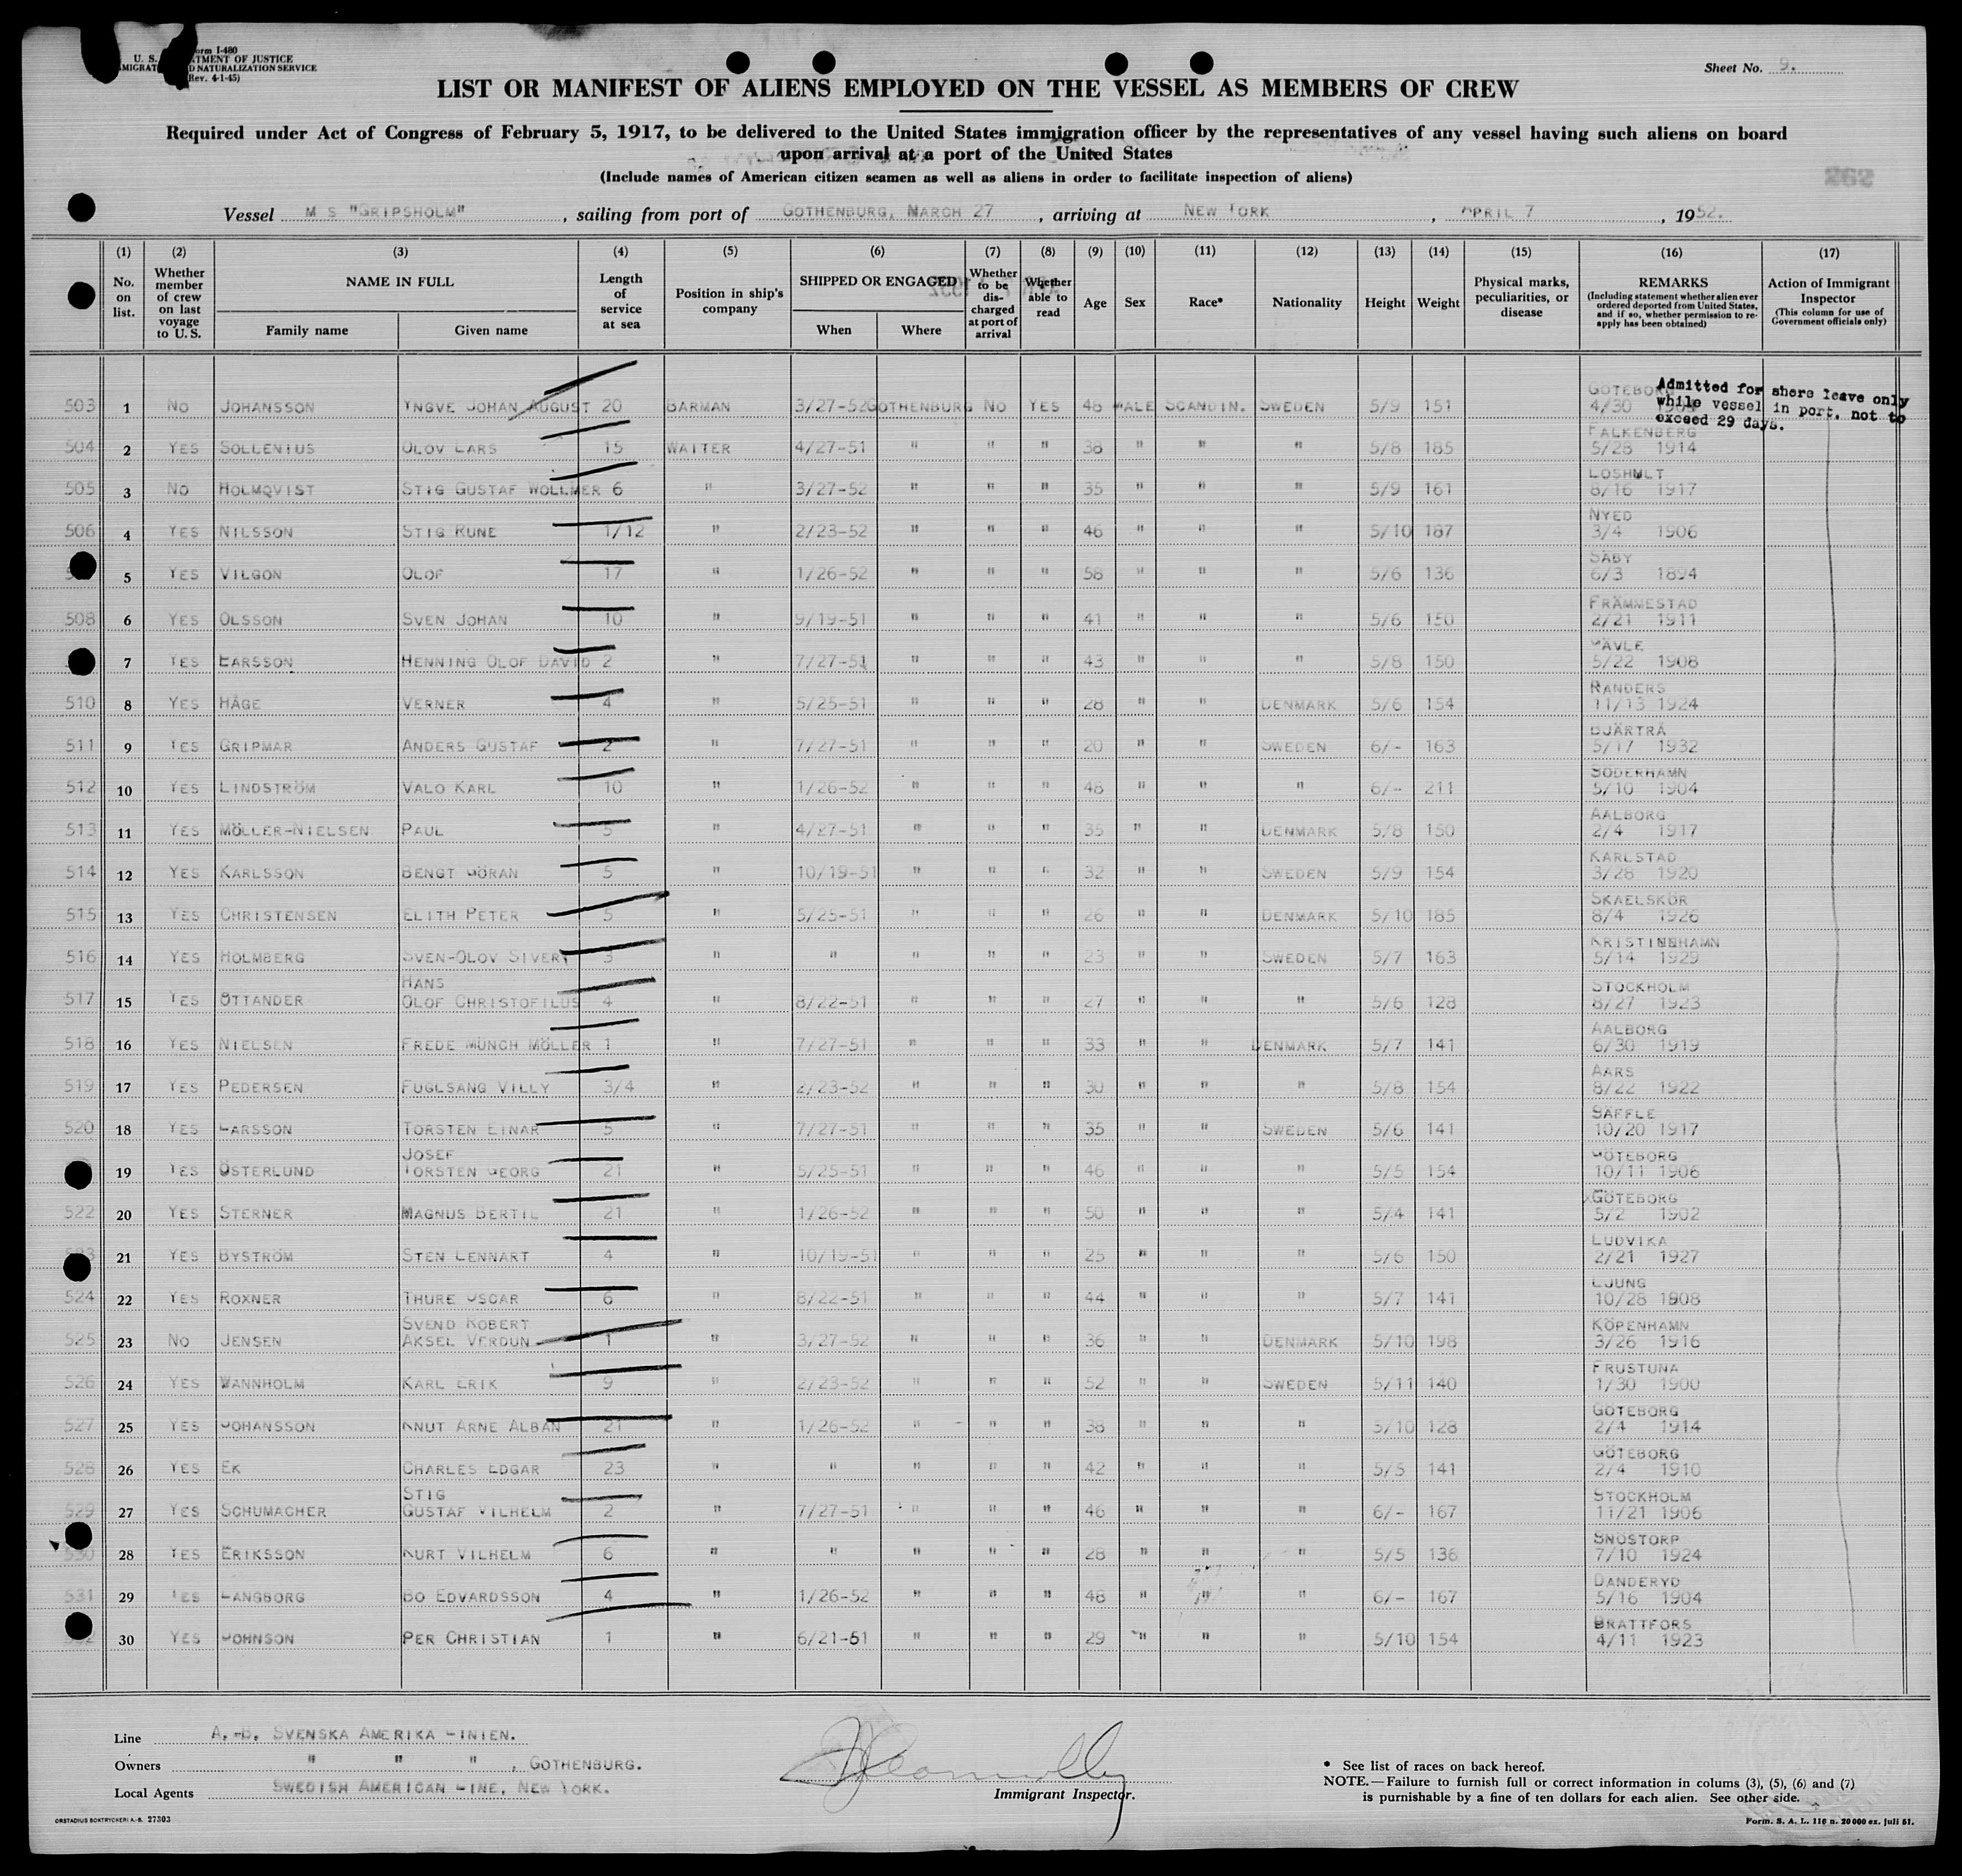 Form I-480
U. S. DEPARTMENT OF JUSTICE
IMMIGRATION AND NATURALIZATION SERVICE
(Rev. 4-1-45)
Sheet No. 9.
LIST OR MANIFEST OF ALIENS EMPLOYED ON THE VESSEL AS MEMBERS OF CREW
Required under Act of Congress of February 5, 1917, to be delivered to the United States immigration officer by the representatives of any vessel having such aliens on board
upon arrival at a port of the United States
(Include names of American citizen seamen as well as aliens in order to facilitate inspection of aliens)
Vessel M S "GRIPSHOLM" , sailing from port of GOTHENBURG, MARCH 27 , arriving at NEW YORK , APRIL 7 , 1952.
(1) (2) (3) (4) (5) (6) (7) (8) (9) (10) (11) (12) (13) (14) (15) (16) (17)
No. on list. Whether member of crew on last voyage to U. S. NAME IN FULL Family name Given name Length of service at sea Position in ship's company SHIPPED OR ENGAGED When Where Whether to be discharged at port of arrival Whether able to read Age Sex Race* Nationality Height Weight Physical marks, peculiarities, or disease REMARKS (Including statement whether alien ever ordered deported from United States, and if so, whether permission to re-apply has been obtained) Action of Immigrant Inspector (This column for use of Government officials only)
Admitted for shore leave only
while vessel in port, not to
exceed 29 days.
503 1 NO JOHANSSON YNGVE JOHAN AUGUST 20 BARMAN 3/27-52 GOTHENBURG NO YES 48 MALE SCANDIN. SWEDEN 5/9 151 GÖTEBORG 4/30
504 2 YES SOLLENIUS OLOV LARS 15 WAITER 4/27-51 " " " 38 " " " 5/8 185 FALKENBERG 5/28 1914
505 3 NO HOLMQVIST STIG GUSTAF WOLLMER 6 " 3/27-52 " " " 35 " " " 5/9 161 LOSHULT 8/16 1917
506 4 YES NILSSON STIG RUNE 1/12 " 2/23-52 " " " 46 " " " 5/10 187 NYED 3/4 1906
5 YES VILGON OLOF 17 " 1/26-52 " " " 58 " " " 5/6 136 SÄBY 6/3 1894
508 6 YES OLSSON SVEN JOHAN 10 " 9/19-51 " " " 41 " " " 5/6 150 FRÄMMESTAD 2/21 1911
7 YES LARSSON HENNING OLOF DAVID 2 " 7/27-51 " " " 43 " " " 5/8 150 GÄVLE 5/22 1908
510 8 YES HÅGE VERNER 4 " 5/25-51 " " " 28 " " DENMARK 5/6 154 RANDERS 11/13 1924
511 9 YES GRIPMAR ANDERS GUSTAF 2 " 7/27-51 " " " 20 " " SWEDEN 6/- 163 BJÄRTRÅ 5/17 1932
512 10 YES LINDSTRÖM VALO KARL 10 " 1/26-52 " " " 48 " " " 6/- 211 SÖDERHAMN 5/10 1904
513 11 YES MÖLLER-NIELSEN PAUL 5 " 4/27-51 " " " 35 " " DENMARK 5/8 150 AALBORG 2/4 1917
514 12 YES KARLSSON BENGT GÖRAN 5 " 10/19-51 " " " 32 " " SWEDEN 5/9 154 KARLSTAD 3/28 1920
515 13 YES CHRISTENSEN ELITH PETER 5 " 5/25-51 " " " 26 " " DENMARK 5/10 185 SKAELSKÖR 8/4 1926
516 14 YES HOLMBERG SVEN-OLOV SIVERT 3 " " " " " 23 " " SWEDEN 5/7 163 KRISTINEHAMN 5/14 1929
517 15 YES ÖTTANDER HANS OLOF CHRISTOFILUS 4 " 8/22-51 " " " 27 " " " 5/6 128 STOCKHOLM 8/27 1923
518 16 YES NIELSEN FREDE MÜNCH MÖLLER 1 " 7/27-51 " " " 33 " " DENMARK 5/7 141 AALBORG 6/30 1919
519 17 YES PEDERSEN FUGLSANG VILLY 3/4 " 2/23-52 " " " 30 " " " 5/8 154 AARS 8/22 1922
520 18 YES LARSSON TORSTEN EINAR 5 " 7/27-51 " " " 35 " " SWEDEN 5/6 141 SÄFFLE 10/20 1917
19 YES ÖSTERLUND JOSEF TORSTEN GEORG 21 " 5/25-51 " " " 46 " " " 5/5 154 GÖTEBORG 10/11 1906
522 20 YES STERNER MAGNUS BERTIL 21 " 1/26-52 " " " 50 " " " 5/4 141 GÖTEBORG 5/2 1902
523 21 YES BYSTRÖM STEN LENNART 4 " 10/19-51 " " " 25 " " " 5/6 150 LUDVIKA 2/21 1927
524 22 YES ROXNER THURE OSCAR 6 " 8/22-51 " " " 44 " " " 5/7 141 LJUNG 10/28 1908
525 23 NO JENSEN SVEND ROBERT AKSEL VERDUN 1 " 3/27-52 " " " 36 " " DENMARK 5/10 198 KÖPENHAMN 3/26 1916
526 24 YES WANNHOLM KARL ERIK 9 " 2/23-52 " " " 52 " " SWEDEN 5/11 140 FRUSTUNA 1/30 1900
527 25 YES JOHANSSON KNUT ARNE ALBAN 21 " 1/26-52 " " " 38 " " " 5/10 128 GÖTEBORG 2/4 1914
528 26 YES EK CHARLES EDGAR 23 " " " " " 42 " " " 5/5 141 GÖTEBORG 2/4 1910
529 27 YES SCHUMACHER STIG GUSTAF VILHELM 2 " 7/27-51 " " " 46 " " " 6/- 167 STOCKHOLM 11/21 1906
530 28 YES ERIKSSON KURT VILHELM 6 " " " " " 28 " " " 5/5 136 SNÖSTORP 7/10 1924
531 29 YES LANGBORG BO EDVARDSSON 4 " 1/26-52 " " " 48 " " " 6/- 167 DANDERYD 5/16 1904
532 30 YES JOHNSON PER CHRISTIAN 1 " 6/21-51 " " " 29 " " " 5/10 154 BRATTFORS 4/11 1923
Line A.-B. SVENSKA AMERIKA LINIEN.
Owners " " " , GOTHENBURG.
Local Agents SWEDISH AMERICAN LINE, NEW YORK.
Immigrant Inspector.
* See list of races on back hereof.
NOTE.—Failure to furnish full or correct information in colums (3), (5), (6) and (7)
is punishable by a fine of ten dollars for each alien. See other side.
ORSTADIUS BOKTRYCKERI A.-B. 27303
Form. S. A. L. 116 n. 20 000 ex. juli 51.